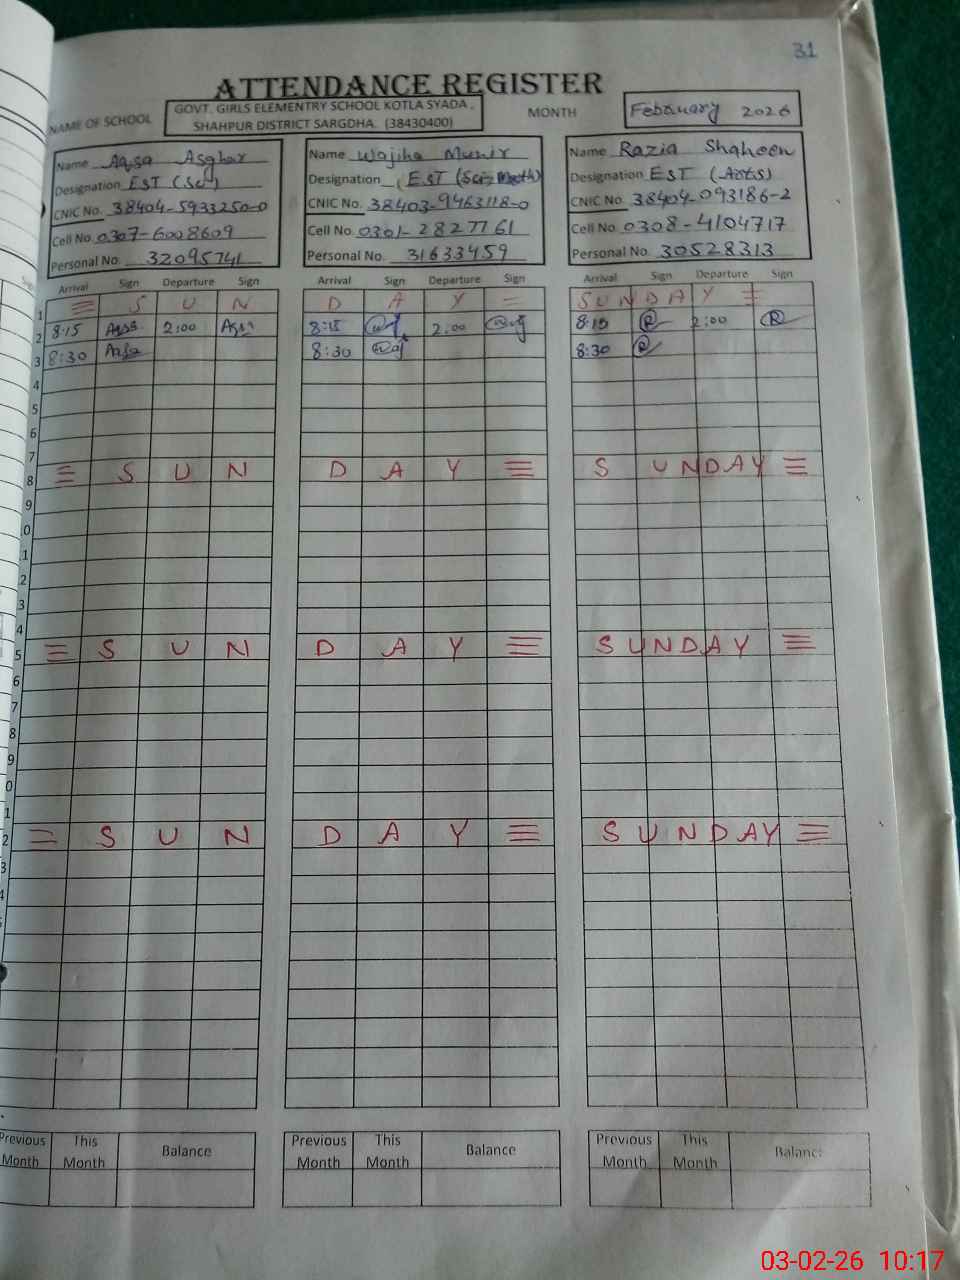 31
ATTENDANCE REGISTER
NAME OF SCHOOL GOVT. GIRLS ELEMENTRY SCHOOL KOTLA SYADA , SHAHPUR DISTRICT SARGDHA. (38430400) MONTH February 2026
Name Aqsa Asghar
Designation EST (Sci)
CNIC No. 38404-5933250-0
Cell No. 0307-6008609
Personal No. 32095741
Name Wajiha Munir
Designation EST (Sci-Math)
CNIC No. 38403-9463118-0
Cell No. 0301-2827761
Personal No. 31633459
Name Razia Shaheen
Designation EST (Arts)
CNIC No. 38404-093186-2
Cell No. 0308-4104717
Personal No. 30528313
Arrival Sign Departure Sign Arrival Sign Departure Sign Arrival Sign Departure Sign
1 S U N D A Y SUNDAY
2 8:15 Aqsa 2:00 Aqsa 8:15 2:00 8:15 R 2:00 R
3 8:30 Aqsa 8:30 8:30 R
4
5
6
7
8 S U N D A Y S UNDAY
9
0
1
2
3
4
5 S U N D A Y SUNDAY
6
7
8
9
0
1
2 S U N D A Y SUNDAY
3
4
Previous Month This Month Balance Previous Month This Month Balance Previous Month This Month Balance
03-02-26 10:17